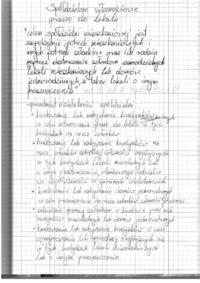 Spółdzielcze własnościowe
prawo do lokalu
celem spółdzielni mieszkaniowej jest
zaspokajanie potrzeb mieszkaniowych
innych potrzeb członków oraz ich rodzin
poprzez dostarczanie członkom samodzielnych
lokali mieszkalnych lub domów
jednorodzinnych a także lokali o innym
przeznaczeniu
- przedmiot działalności spółdzielni
budowanie lub nabywanie budynków
celu ustanowienia prawa do lokali w tych
budynkach na rzecz członków
budowanie lub nabywanie budynków
na rzecz członków odrębnej własności znajdujących się
w tych budynkach lokali mieszkalnych lub
o innym przeznaczeniu
budowanie lub nabywanie domów jednorodzinnych
w celu przeniesienia na rzecz członków własności
udzielanie pomocy członkom w budowie przez nich
budynków mieszkalnych lub domów jednorodzinnych
budowanie lub nabywanie budynków w celu
wynajmowania lub sprzedaży znajdujących się
w tych budynkach lokali mieszkalnych lub
lub o innym przeznaczeniu